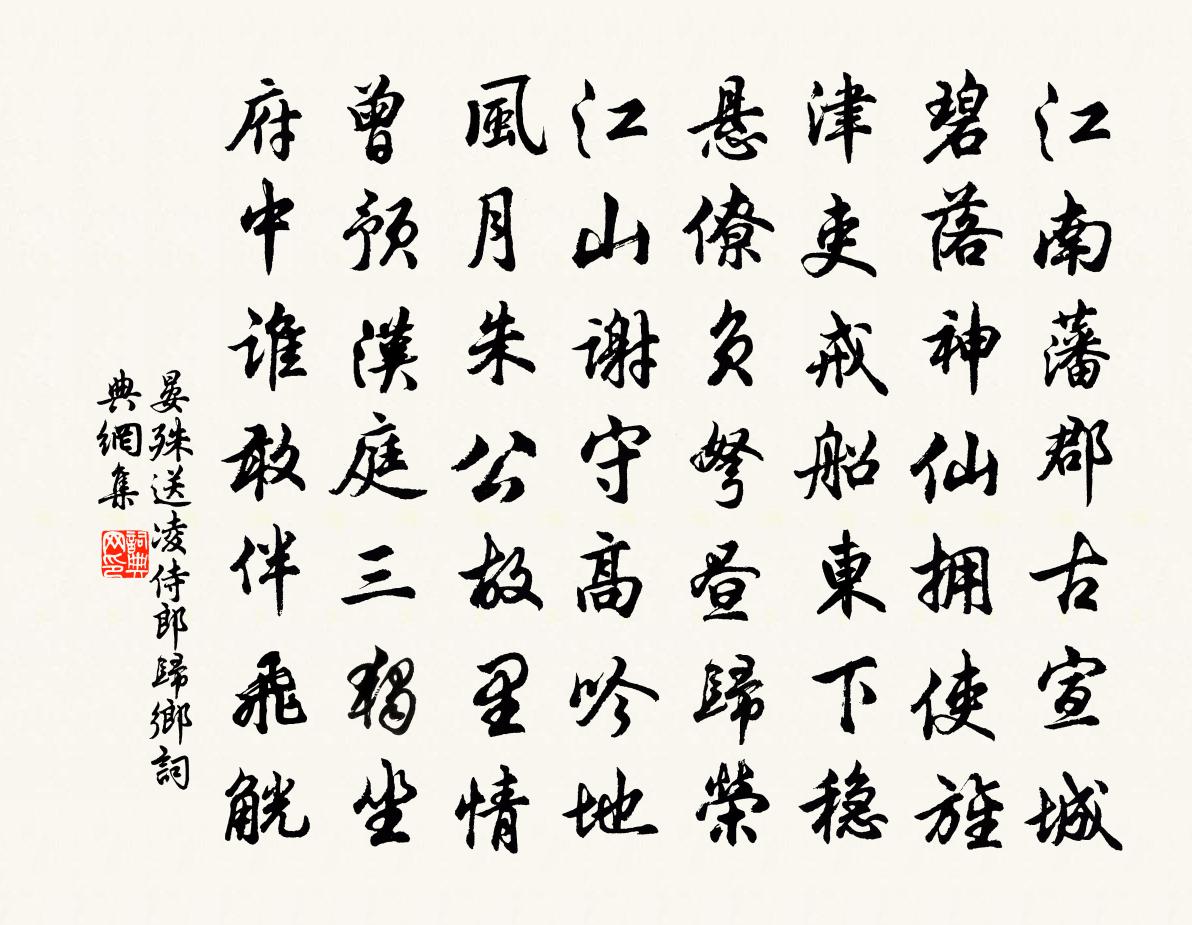 江南藩郡古宣城
碧落神仙拥使旌
津吏戒船東下穏
县僚負弩昼歸榮
江山謝守高吟地
風月朱公故里情
曾預漢庭三獨坐
府中誰敢伴飛觥
晏殊送凌侍郎歸鄉詞
典網集
詞典
网印